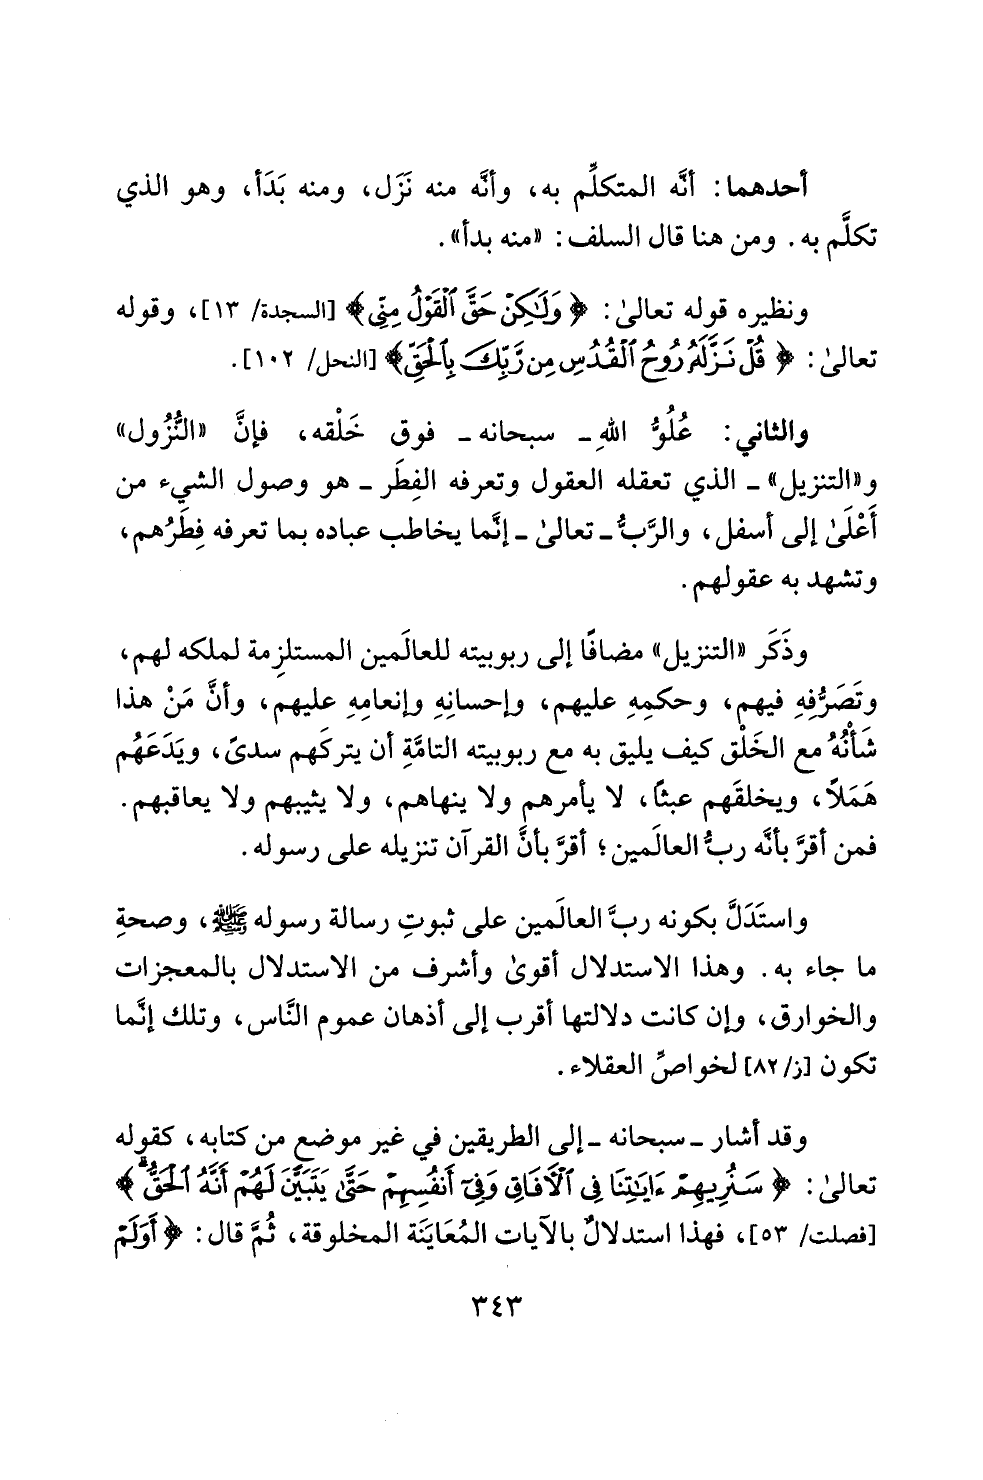 أحدهما: أنَّه المتكلِّم به، وأنَّه منه نَزَل، ومنه بَدَأ، وهو الذي
تكلَّم به. ومن هنا قال السلف: «منه بدأ».
ونظيره قوله تعالىٰ: ﴿وَلَٰكِنْ حَقَّ ٱلْقَوْلُ مِنِّى﴾ [السجدة/ ١٣]، وقوله
تعالىٰ: ﴿قُلْ نَزَّلَهُۥ رُوحُ ٱلْقُدُسِ مِن رَّبِّكَ بِٱلْحَقِّ﴾ [النحل/ ١٠٢].
والثاني: عُلُوُّ اللهِ ـ سبحانه ـ فوق خَلْقه، فإنَّ «النُّزُول»
و«التنزيل» ـ الذي تعقله العقول وتعرفه الفِطَر ـ هو وصول الشيء من
أَعْلَىٰ إلى أسفل، والرَّبُّ ـ تعالىٰ ـ إنَّما يخاطب عباده بما تعرفه فِطَرُهم،
وتشهد به عقولهم.
وذَكَر «التنزيل» مضافًا إلى ربوبيته للعالَمين المستلزِمة لملكه لهم،
وتَصَرُّفِهِ فيهم، وحكمِهِ عليهم، وإحسانِهِ وإنعامِهِ عليهم، وأنَّ مَنْ هذا
شَأْنُهُ مع الخَلْق كيف يليق به مع ربوبيته التامَّةِ أن يتركَهم سدىً، ويَدَعَهُم
هَمَلًا، ويخلقَهم عبثًا، لا يأمرهم ولا ينهاهم، ولا يثيبهم ولا يعاقبهم.
فمن أقرَّ بأنَّه ربُّ العالَمين؛ أقرَّ بأنَّ القرآن تنزيله على رسوله.
واستَدَلَّ بكونه ربَّ العالَمين على ثبوتِ رسالة رسوله ﷺ، وصحةِ
ما جاء به. وهذا الاستدلال أقوىٰ وأشرف من الاستدلال بالمعجزات
والخوارق، وإن كانت دلالتها أقرب إلى أذهان عموم النَّاس، وتلك إنَّما
تكون [ز/ ٨٢] لخواصِّ العقلاء.
وقد أشار ـ سبحانه ـ إلى الطريقين في غير موضع من كتابه، كقوله
تعالىٰ: ﴿سَنُرِيهِمْ ءَايَٰتِنَا فِى ٱلْءَافَاقِ وَفِىٓ أَنفُسِهِمْ حَتَّىٰ يَتَبَيَّنَ لَهُمْ أَنَّهُ ٱلْحَقُّ ۗ﴾
[فصلت/ ٥٣]، فهذا استدلالٌ بالآيات المُعَايَنَة المخلوقة، ثُمَّ قال: ﴿أَوَلَمْ
٣٤٣